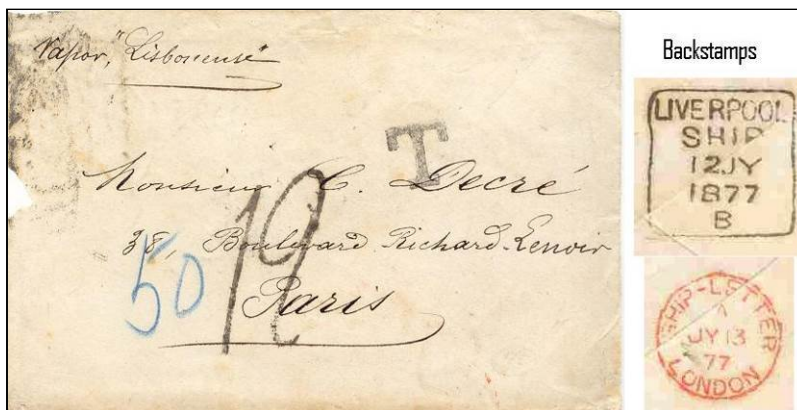 Vapor, "Lisbonense"
T
Monsieur C. Decré
38, Boulevard Richard-Lenoir
50
12
Paris
Backstamps
LIVERPOOL
SHIP
12 JY
1877
B
SHIP-LETTER
A
JY 13
77
LONDON